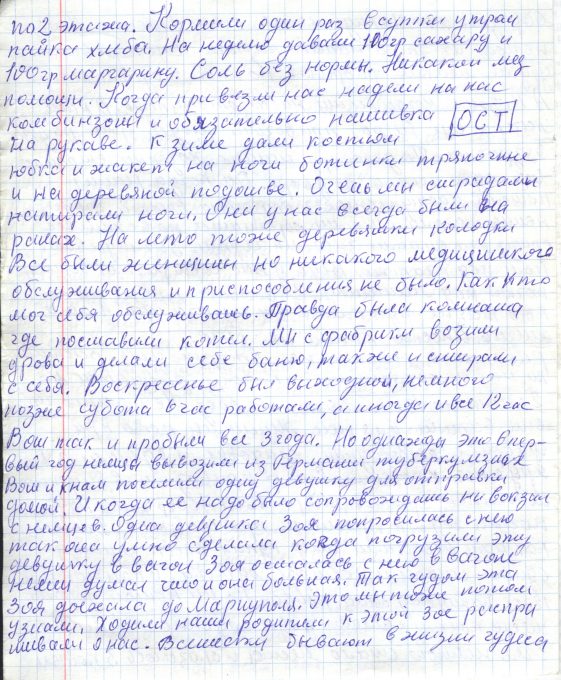 по 2 этажа. Кормили один раз в сутки утром
пайка хлеба. На неделю давали 100гр сахару и
100гр маргарину. Соль без нормы. Никакой мед
помощи. Когда привезли нас надели на нас
комбинзоны и обязательно нашивка ОСТ
на рукаве. К зиме дали костюм
юбка и жакет на ноги ботинки тряпочные
и на деревяной подошве. Очень мы страдали
натирали ноги. Они у нас всегда были на
ранах. На лето тоже деревяшки колодки
Все были женщины но никакого медицинского
обслуживания и приспособления не было. Как кто
мог себя обслуживать. Правда была комната
где поставили котел. Мы с фабрики возили
дрова и делали себе баню, также и стирали
с себя. Воскресенье был выходной, немного
позже субота 6 час работали, а иногда и все 12 час
Вот так и пробыли все 3 года. Но однажды это в пер-
вый год немцы вывозили из Германии туберкулезных
Вот и к нам поселили одну девушку для отправки
домой. И когда ее надо было сопровождать на вокзал
с немцев. Одна девушка Зоя попросилась с нею
так она умно сделала когда погрузили эту
девушку в вагон Зоя осталась с нею в вагоне
немец думал что и она больная. Так чудом эта
Зоя доехала до Мариуполя. Это мы позже потом
узнали. Ходили наши родители к этой Зое распра
шивали о нас. Воистину бывают в жизни чудеса